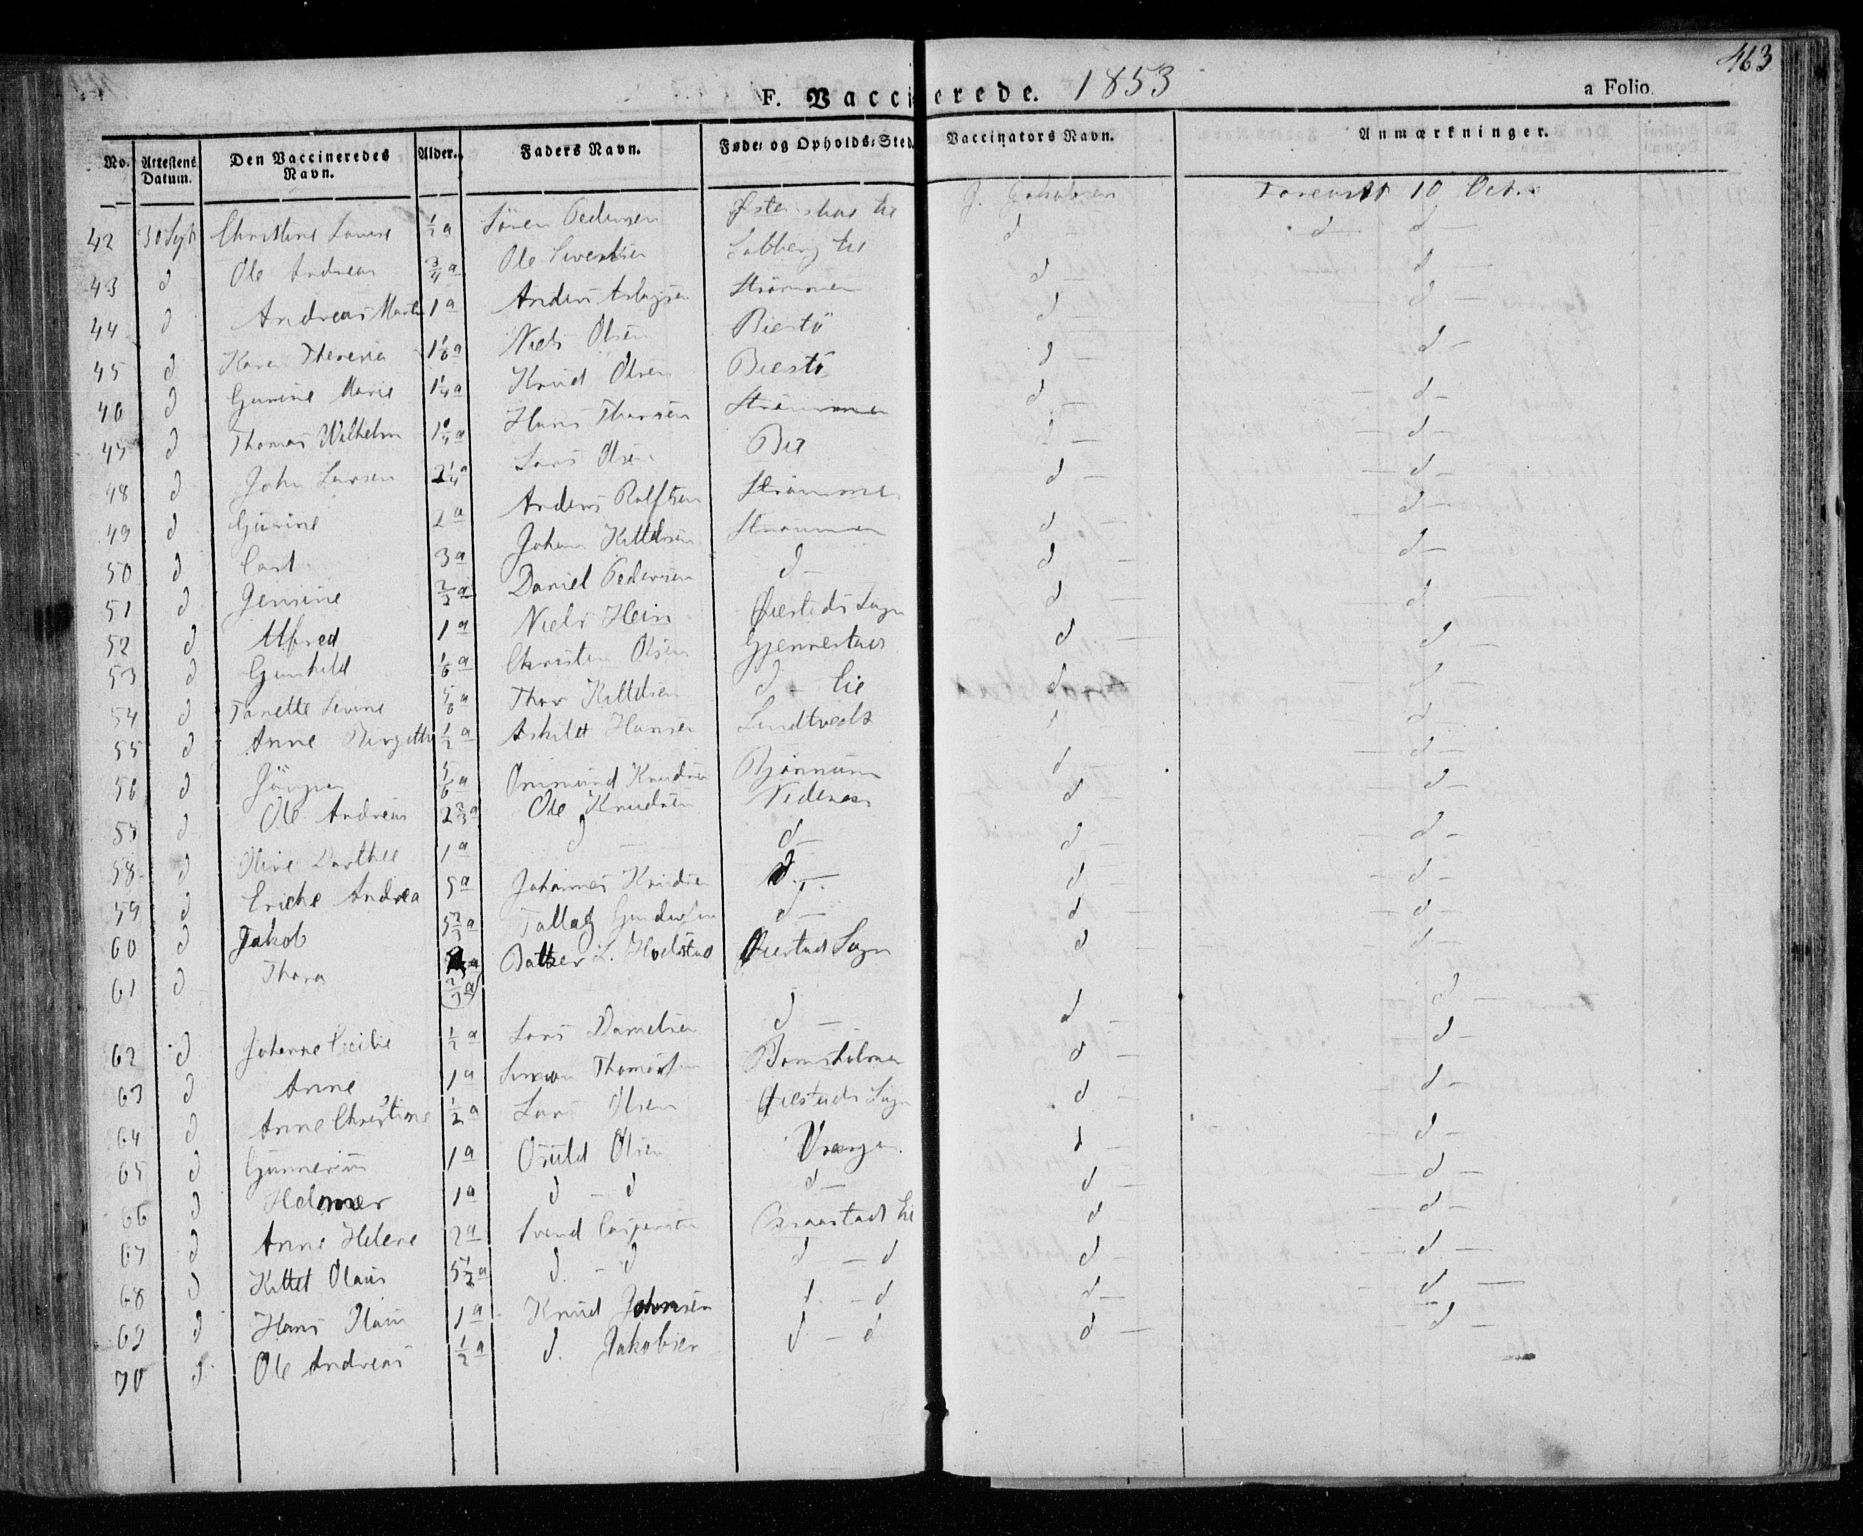 463
F. Vaccinerede. 1853
a Folio.
No. Attestens Datum. Den Vaccineredes Navn. Alder. Faders Navn. Føde- og Opholds-Sted. Vaccinators Navn. Anmærkninger.
42 30 Sept Christine Lovise 1/2 a Sören Pedersen J. Jakobsen Forevist 10 Oct.
43 d Ole Andreas 3/4 a Ole Sivertsen d d d
44 d Andreas Martin 1 a Anders Aslagsen Strömmen d d
45 d Karen Theresia 1 1/6 a Niels Olsen Biestö d d
46 d Gunine Marie 1 1/4 a Knud Olsen Biestö d d
47 d Thomas Wilhelm Hans Thorsen Strömmen d d
48 d John Larsen 2 1/4 a Lars Olsen Bie d d
49 d Gunine 2 a Anders Rolfsen Strömmen d d
50 d Carl 3 a Johan Kittelsen Strömmen d d
51 d Jensine Daniel Pedersen d d d
52 d Alfred 1 a Niels Hein Øiestads Sogn d d
53 d Gunhild 1/6 a Christen Olsen Gjennestad d d
54 d Tanette Sevine 5/6 a Thor Kittelsen d eie d d
55 d Anne Birgitte 1/2 a Askild Hansen Lindtveds d d
56 d Jörgen 5/6 a Omund Knudsen Bjönnum d d
57 d Ole Andreas 2 2/3 a Ole Knudsen Nedenes d d
58 d Oline Dorthee 1 a d d d d
59 d Eriche Andrea 5 a Johannes Knudsen d d d
60 d Jakob 5 2/3 a Tallag Gundersen d d d
61 d Thora 2/3 a Batser L. Hoelstad Øiestad Sogn d d
62 d Johanne Cecilie 1/2 a Lars Danielsen d d d
63 d Anne 1 a Simon Thomassen Bomsholmen d d
64 d Anne Christine 1/2 a Lars Olsen Øiestads Sogn d d
65 d Gunnerius 1 a Osuld Olsen Vrængen d d
66 d Helmer 1 a d d d d d
67 d Anne Helene 2 a Svend Caspersen Braastad eie d d
68 d Kittel Olaus 5 1/2 a d d d d d d
69 d Hans Olaus 1 a Knud Johnsen d d d d
70 d Ole Andreas 1/2 a d. Jakobsen d d d d